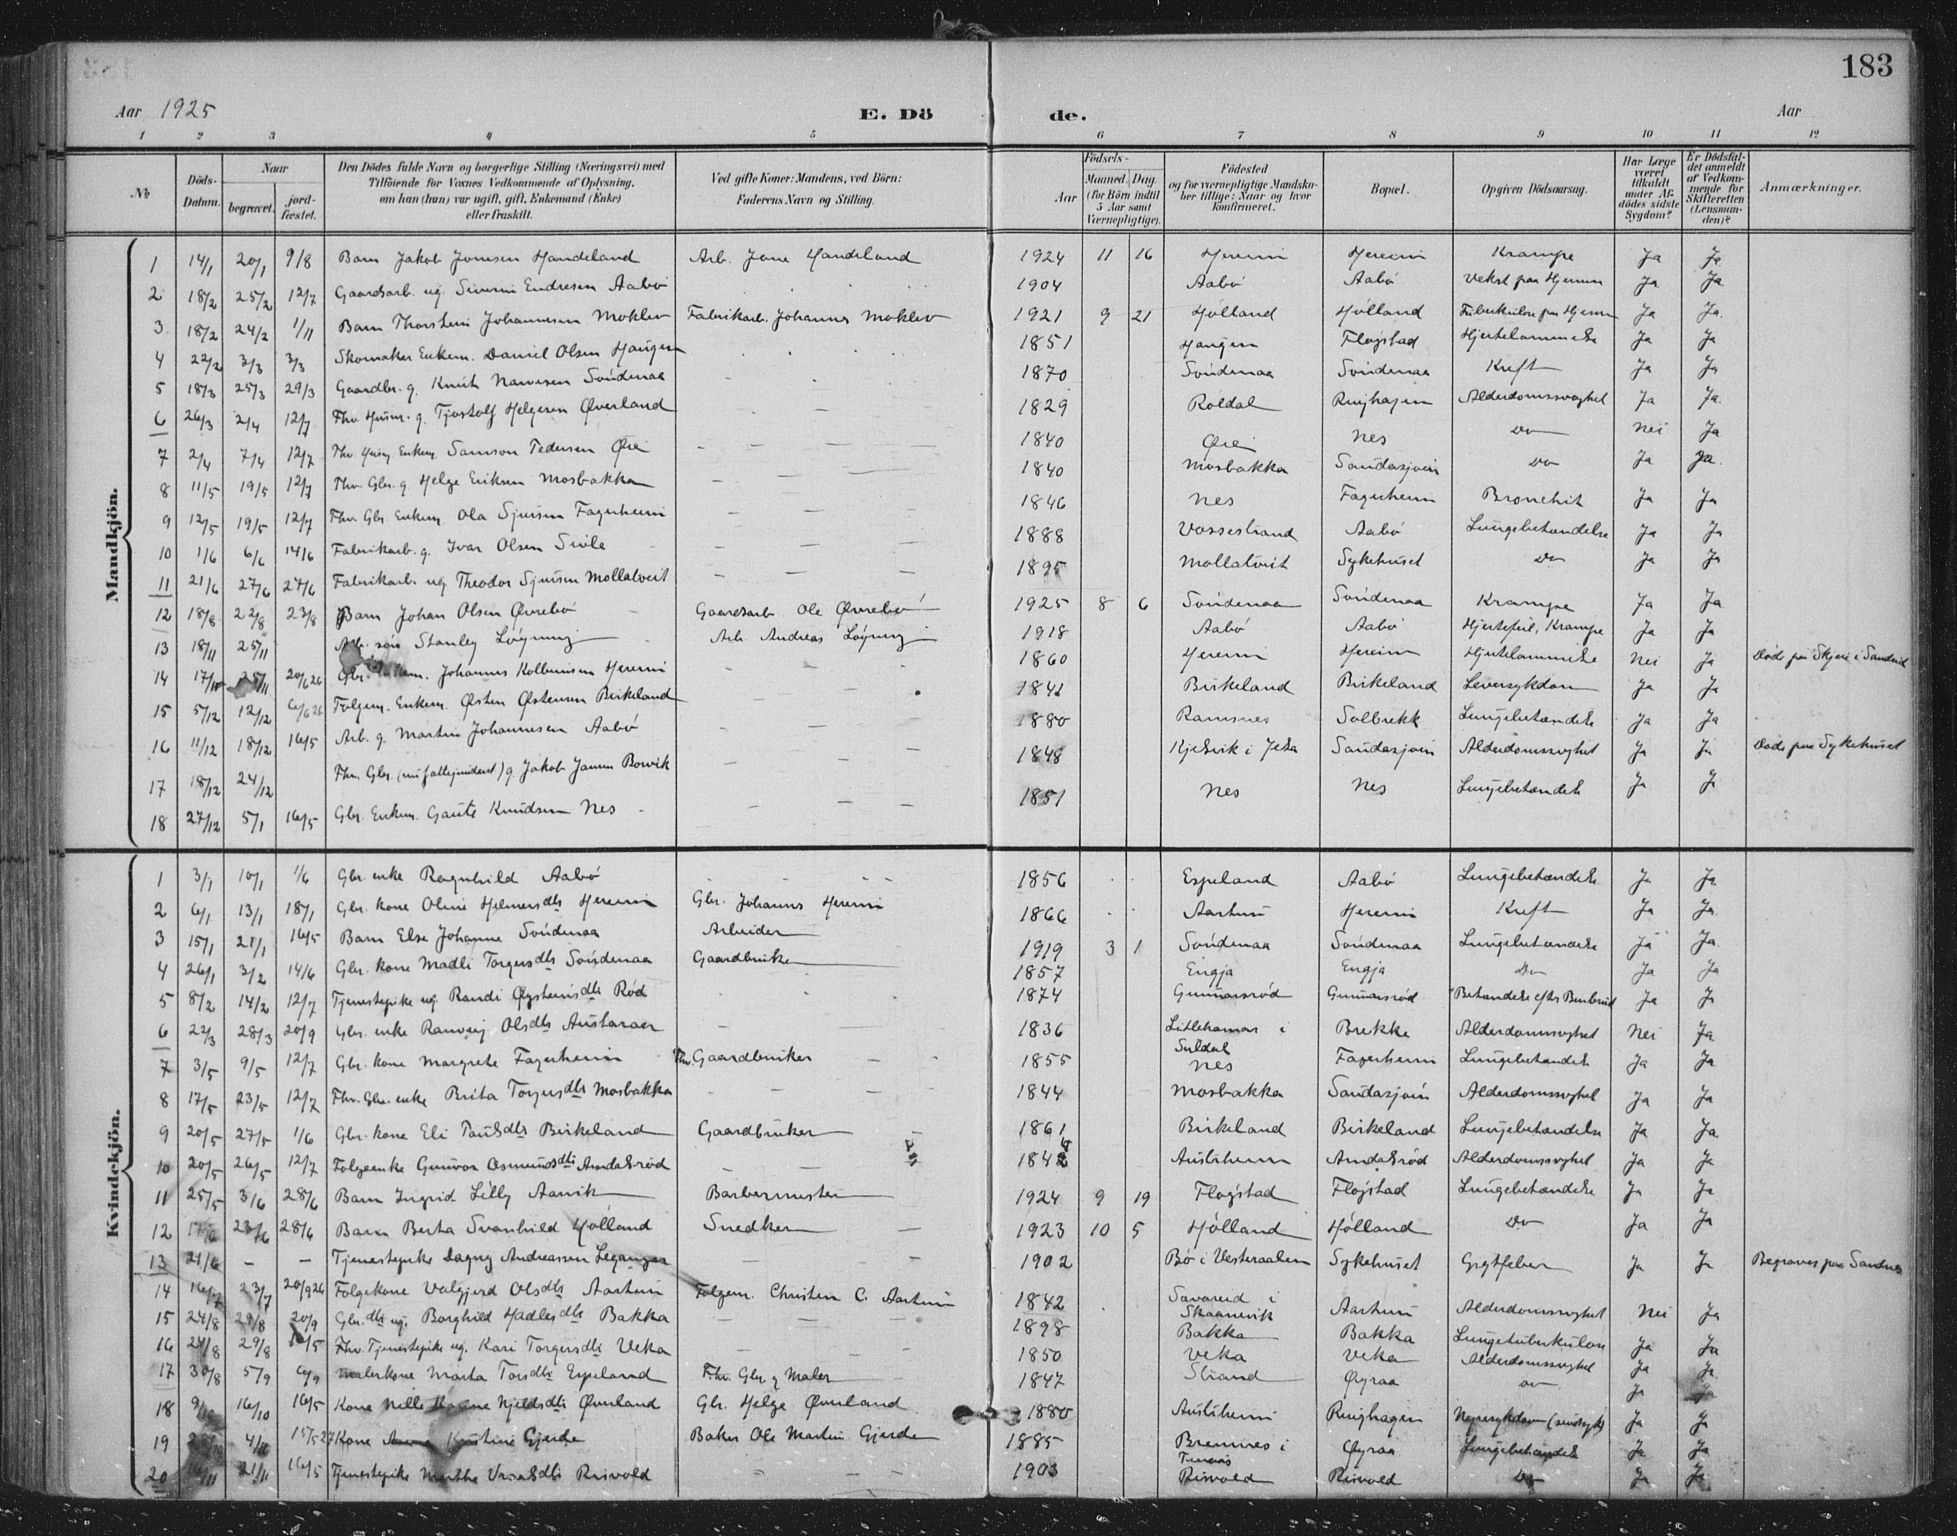 183
Aar 1925
E. Dö
de.
Aar
1 2 3 4 5 6 7 8 9 10 11 12
No
Döds-Datum.
Naar
begravet.
jord-fæstet.
Den Dödes fulde Navn og borgerlige Stilling (Næringsvei) med
Tilföiende for Voxnes Vedkommende af Oplysning,
om han (hun) var ugift, gift, Enkemand (Enke)
eller fraskilt.
Ved gifte Koner: Mandens, ved Börn:
Faderens Navn og Stilling.
Födsels-
Aar
Maaned. Dag.
(for Börn indtil
5 Aar samt
Værnepligtige).
Födested
og for værnepligtige Mandska-
ber tillige: Naar og hvor
konfirmeret.
Bopæl.
Opgiven Dödsaarsag.
Har Læge
været
tilkaldt
under Af-
dödes sidste
Sygdom?
Er Dödsfal-
det anmeldt
af Vedkom-
mende for
Skifteretten
(Lensman-
den)?
Anmærkninger.
Mandkjön.
1 14/1 20/1 9/8 Barn Jakob Jonesen Handeland Arb. Jone Handeland 1924 11 16 Hereim Hereim Krampe Ja Ja
2 18/2 25/2 12/7 Gaardsarb. ug. Siverin Endresen Aabø 1904 Aabø Aabø Vekst paa Hjernen Ja Ja
3 18/2 24/2 1/11 Barn Thorstein Johannesen Moklev Fabrikarb. Johannes Moklev 1921 9 21 Hølland Hølland Tuberkulose paa Hjernen Ja Ja
4 22/2 3/3 3/3 Skomaker Enkem. Daniel Olsen Haugen 1851 Haugen Fløgstad Hjertelammelse Ja Ja
5 18/3 25/3 29/3 Gaardbr. g. Knut Narvesen Søndenaa 1870 Søndenaa Søndenaa Kreft Ja Ja
6 26/3 2/4 12/7 Fhv. Husm. g. Tjostolf Helgesen Øverland 1829 Røldal Ringhagen Alderdomssvaghet Ja Ja
7 2/4 7/4 12/7 Fhv. Husm. Enkem. Samson Pedersen Øie 1840 Øie Nes Do Nei Ja
8 11/5 19/5 12/7 Fhv. Gbr. g. Helge Eriksen Mosbakka 1840 Mosbakka Saudasjøen Do Ja Ja
9 12/5 19/5 12/7 Fhv. Gbr. Enkem. Ola Sjursen Fagerheim 1846 Nes Fagerheim Bronchit Ja Ja
10 1/6 6/6 14/6 Fabrikarb. g. Ivar Olsen Sivle 1888 Vossestrand Aabø Lungebetændelse Ja Ja
11 21/6 27/6 27/6 Fabrikarb. ug Theodor Sjursen Mollatveit 1895 Mollatveit Sykehuset Do Ja Ja
12 18/8 22/8 23/8 Barn Johan Olsen Øvrebø Gaardsarb. Ole Øvrebø 1925 8 6 Søndenaa Søndenaa Krampe Ja Ja
13 18/11 25/11 Arb. søn Stanley Løyning Arb. Andreas Løyning 1918 Aabø Aabø Hjertefeil, Krampe Ja Ja
14 17/11 25/11 20/6 26 Gbr. Enkem. Johannes Kolbeinsen Hereim 1860 Hereim Hereim Hjertelammelse Nei Ja Døde paa Skjeie i Sandeid
15 5/12 12/12 6/6 26 Følgem. Enkem. Østen Østensen Birkeland 1841 Birkeland Birkeland Leversykdom Ja Ja
16 11/12 18/12 16/5 Arb. g. Martin Johannesen Aabø 1880 Ramsnes Solbrekk Lungebetændelse Ja Ja
17 18/12 24/12 Fhv. Gbr. g. Jakob Jansen Borvik 1848 Kjelvik i Jelsa Saudasjøen Alderdomssvaghet Ja Ja Døde paa Sykehuset
18 27/12 5/1 16/5 Gbr. Enkem. Gaute Knudsen Nes 1851 Nes Nes Lungebetændelse Ja Ja
Kvindekjön.
1 3/1 10/1 1/6 Gbr. enke Ragnhild Aabø 1856 Espeland Aabø Lungebetændelse Ja Ja
2 6/1 13/1 18/1 Gbr. kone Oline Helmersdtr Hereim Gbr. Johannes Hereim 1866 Aarthun Hereim Kreft Ja Ja
3 15/1 21/1 16/5 Barn Else Johanne Søndenaa Arbeider 1919 3 1 Søndenaa Søndenaa Lungebetændelse Ja Ja
4 26/1 3/2 14/6 Gbr. kone Madli Torgersdtr Søndenaa Gaardbruker 1857 Engja Engja Do Ja Ja
5 8/2 14/2 12/7 Tjenestepike ug. Randi Øysteinsdtr Rød 1874 Gunnarsrød Gunnarsrød Betændelse efter Benbrud Ja Ja
6 22/3 28/3 20/9 Gbr. enke Ranveig Olsdtr Austaraas 1836 Litlehamar i Suldal Brekke Alderdomssvaghet Nei Ja
7 3/5 9/5 12/7 Gbr. kone Margrete Fagerheim Fhv. Gaardbruker 1855 Nes Fagerheim Lungebetændelse Ja Ja
8 17/5 23/5 12/7 Fhv. Gbr. enke Brita Torgersdtr Mosbakka 1844 Mosbakka Saudasjøen Alderdomssvaghet Ja Ja
9 20/5 27/5 1/6 Gbr. kone Eli Paulsdtr Birkeland Gaardbruker 1861 Birkeland Birkeland Lungebetændelse Ja Ja
10 20/5 26/5 12/7 Følgeenke Gunvor Osmundsdtr Amdalsrød 1842 Austrheim Amdalsrød Alderdomssvaghet Ja Ja
11 25/5 3/6 28/6 Barn Ingrid Lilly Aarvik Barbermester 1924 9 19 Fløgstad Fløgstad Lungebetændelse Ja Ja
12 17/6 23/6 28/6 Barn Berta Svanhild Hølland Snedker 1923 10 5 Hølland Hølland Do Ja Ja
13 21/6 — — Tjenestepike Dagny Andreassen Leganger 1902 Bø i Vesteraalen Sykehuset Gigtfeber Ja Ja Begraves paa Sandnes
14 16/7 23/7 20/9 26 Følgekone Valgjerd Olsdtr Aarthun Følgem. Christen C. Aarthun 1842 Savareid i Skaanevik Aarthun Alderdomssvaghet Nei Ja
15 24/8 29/8 20/9 Gbr. dtr ug. Borghild Hadlesdtr Bakka 1898 Bakka Bakka Lungetuberkulose Ja Ja
16 24/8 29/8 16/5 Fhv. Tjenestepike ug. Kari Torgersdtr Veka 1850 Veka Veka Alderdomssvaghet Ja Ja
17 30/8 5/9 6/9 Malerkone Marta Torsdtr Espeland Fhv. Gbr. g Maler 1847 Strand Øyraa Do Ja Ja
18 9/10 16/10 16/5 Kone Nille Njeldsdtr Øverland Gbr. Helge Øverland 1880 Austrheim Ringhagen Nyresykdom (sindssyk) Ja Ja
19 4/11 15/5 27 Kone Kristine Gjerde Baker Ole Martin Gjerde 1885 Bremnes i Øyraa Lungebetændelse Ja Ja
20 21/11 16/5 Tjenestepike Martha Risvold 1903 Risvold Risvold Do Ja Ja